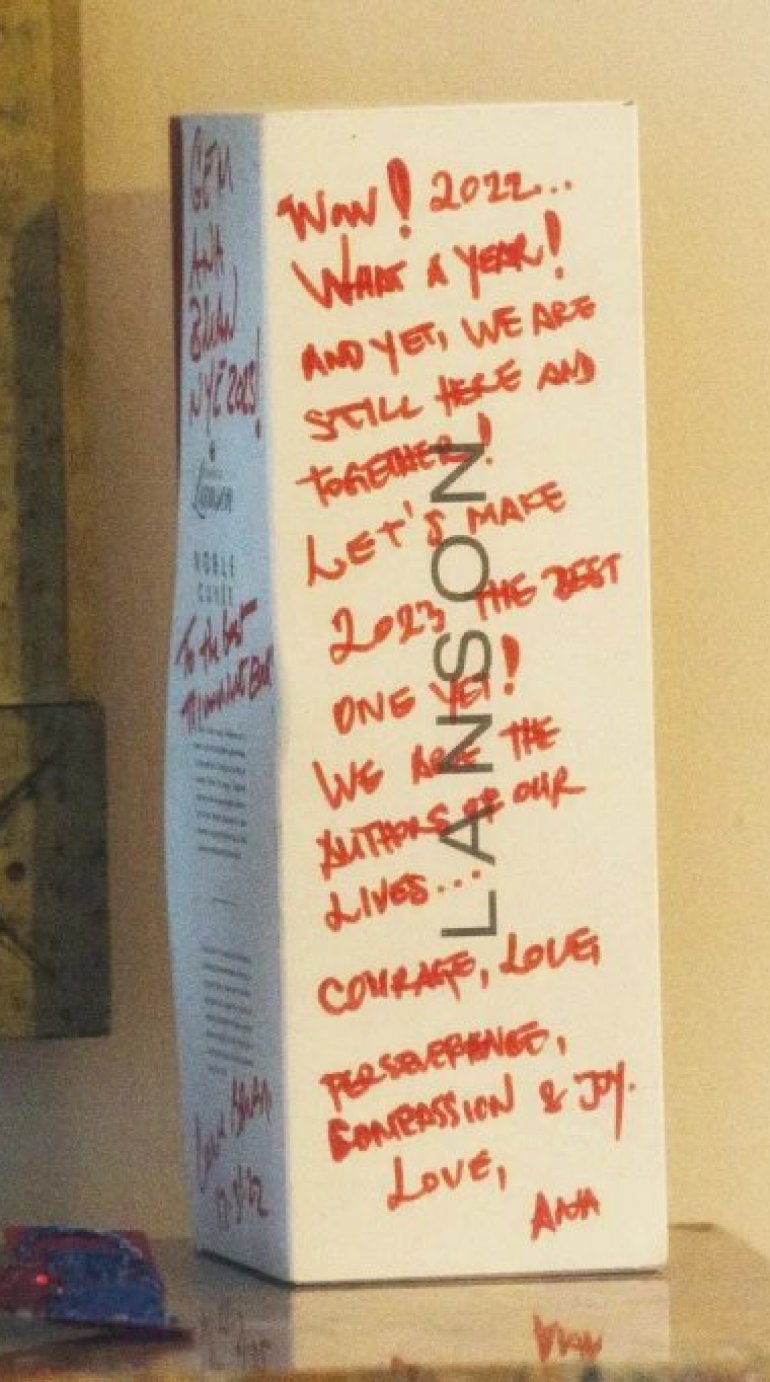 GEM
ANA
BRIAN
NYE 2023!
Lanson
NOBLE
CUVÉE
To the best
Wow! 2022...
WHAT A YEAR!
AND YET, WE ARE
STILL HERE AND
TOGETHER!
LET'S MAKE
2023 THE BEST
ONE YET!
WE ARE THE
AUTHORS OF OUR
LIVES...
COURAGE, LOVE,
PERSEVERENCE,
COMPASSION & JOY.
LOVE,
ANA
LANSON